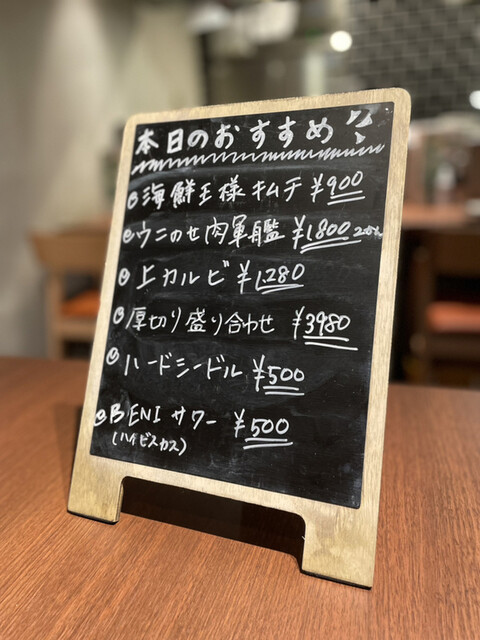 本日のおすすめ!!
海鮮王様キムチ ¥900
ウニのせ肉軍艦 ¥1,800 2カン
上カルビ ¥1,280
厚切り盛り合わせ ¥3980
ハードシードル ¥500
BENI サワー ¥500
(ハイビスカス)